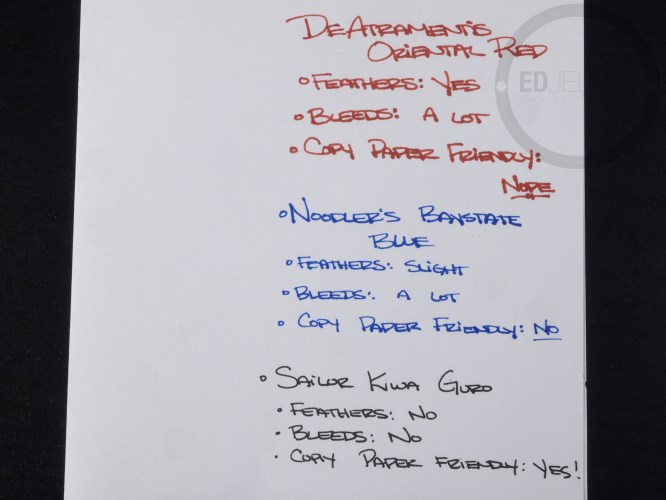 DeAtrament's
Oriental Red
• Feathers: Yes
• Bleeds: A lot
• Copy Paper Friendly:
Nope
• Noodler's Baystate
Blue
• Feathers: Slight
• Bleeds: A lot
• Copy Paper Friendly: No
• Sailor Kiwa Guro
• Feathers: No
• Bleeds: No
• Copy Paper Friendly: Yes!